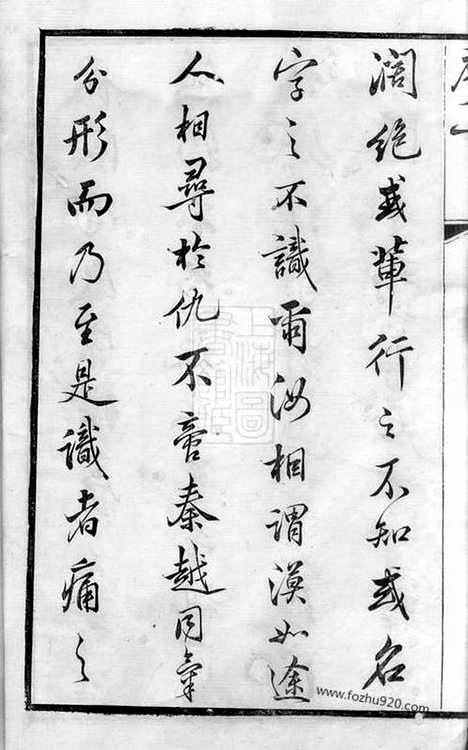 濶絶或輩行之不知或名
字之不識爾汝相謂漠如途
人相尋於仇不啻秦越同氣
分形而乃至是識者痛之
www.fozhu920.com